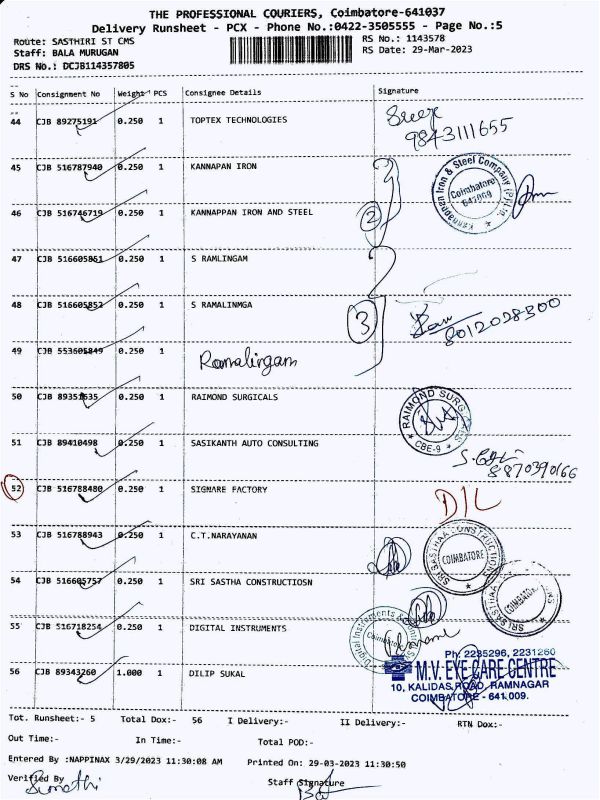 THE PROFESSIONAL COURIERS, Coimbatore-641037
Delivery Runsheet - PCX - Phone No.:0422-3505555 - Page No.:5
Route: SASTHIRI ST CMS
RS No.: 1143578
Staff: BALA MURUGAN
RS Date: 29-Mar-2023
DRS No.: DCJB114357805
S No Consignment No Weight PCS Consignee Details Signature
44 CJB 89275191 0.250 1 TOPTEX TECHNOLOGIES
9843111655
45 CJB 516787940 0.250 1 KANNAPAN IRON
Kannapan Iron & Steel Company (P) Ltd.
Coimbatore
641 009
46 CJB 516746719 0.250 1 KANNAPPAN IRON AND STEEL
2
47 CJB 516605861 0.250 1 S RAMLINGAM
48 CJB 516605852 0.250 1 S RAMALINMGA
3
8012028300
49 CJB 553605849 0.250 1 Ramalingam
50 CJB 89351635 0.250 1 RAIMOND SURGICALS
RAIMOND SURGICALS
CBE-9
51 CJB 89410498 0.250 1 SASIKANTH AUTO CONSULTING
8870390166
52 CJB 516788480 0.250 1 SIGMARE FACTORY
D/L
53 CJB 516788943 0.250 1 C.T.NARAYANAN
SRI SASTHAA CONSTRUCTIONS
COIMBATORE
54 CJB 516605757 0.250 1 SRI SASTHA CONSTRUCTIOSN
SRI SASTHAA CONSTRUCTIONS
COIMBATORE
55 CJB 516718254 0.250 1 DIGITAL INSTRUMENTS
Digital Instruments &
Coimbatore
56 CJB 89343260 1.000 1 DILIP SUKAL
Ph: 2235296, 2231260
M.V. EYE CARE CENTRE
10, KALIDAS ROAD, RAMNAGAR
COIMBATORE - 641 009.
Tot. Runsheet:- 5 Total Dox:- 56 I Delivery:- II Delivery:- RTN Dox:-
Out Time:- In Time:- Total POD:-
Entered By :NAPPINAX 3/29/2023 11:30:08 AM Printed On: 29-03-2023 11:30:50
Verified By Staff Signature